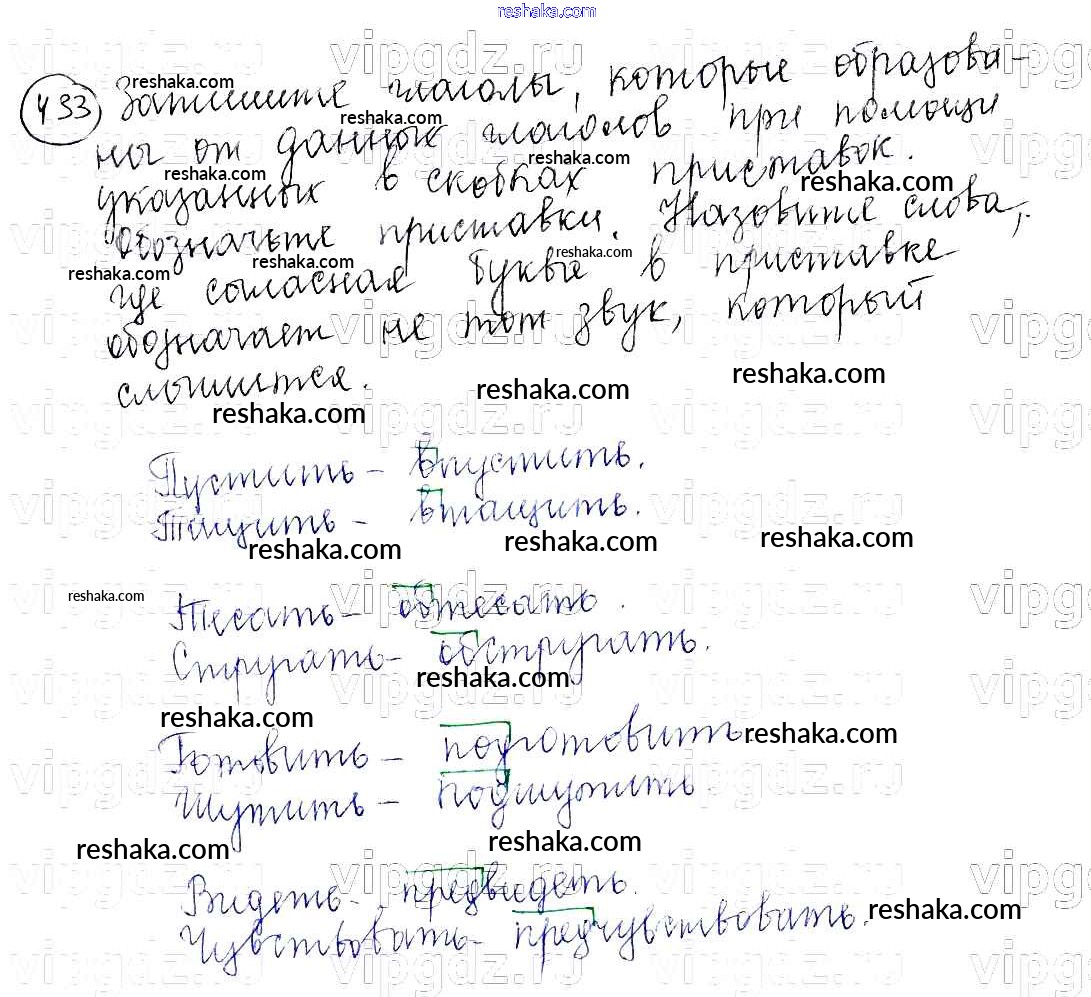 reshaka.com
433 Запишите глаголы, которые образова-
ны от данных глаголов при помощи
указанных в скобках приставок.
Обозначьте приставки. Назовите слова,
где согласная буква в приставке
обозначает не тот звук, который
слышится.
Пустить - впустить.
Тащить - втащить.
Тесать - обтесать.
Стругать - обстругать.
Готовить - подготовить
Шутить - подшутить.
Видеть - предвидеть.
Чувствовать - предчувствовать.